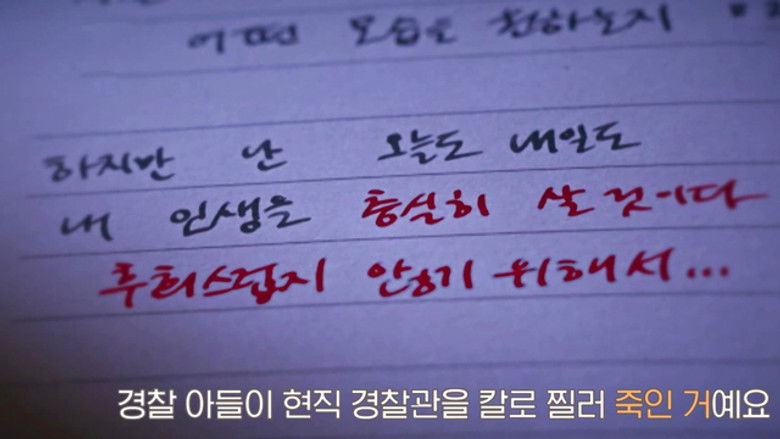 어떤 모습을 원하는지
하지만 난 오늘도 내일도
내 인생을 충실히 살 것이다
후회스럽지 않기 위해서...
경찰 아들이 현직 경찰관을 칼로 찔러 죽인 거예요